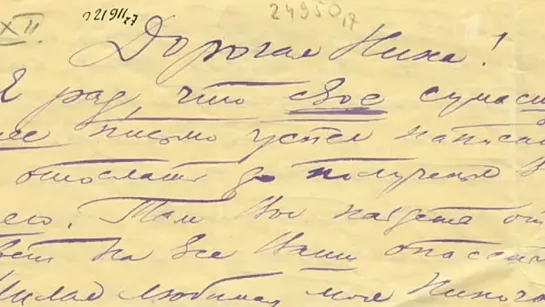 XII.
21911/27
24950/17
Дорогая Нина!
Я рад, что свое сумасш
ее письмо успел написат
отослать до получения В
его. Там Вы найдете от
вет на все Ваши опасени
Милая любимая моя Ниноч